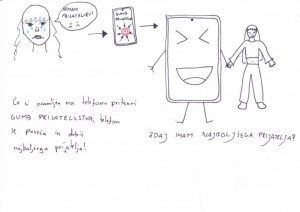 NIMAM
PRIJATELJEV
GUMB
PRIJATELJSTVA
Če si osamljen na telefonu pritisni
GUMB PRIJATELJSTVA, telefon
se poveča in dobiš
najboljšega prijatelja!
ZDAJ IMAM NAJBOLJŠEGA PRIJATELJA!